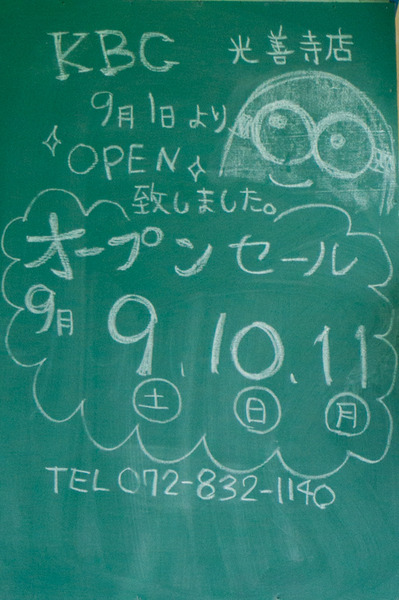 KBC 光善寺店
9月1日より
OPEN
致しました。
オープンセール
9月 9.10.11
土 日 月
TEL 072-832-1140